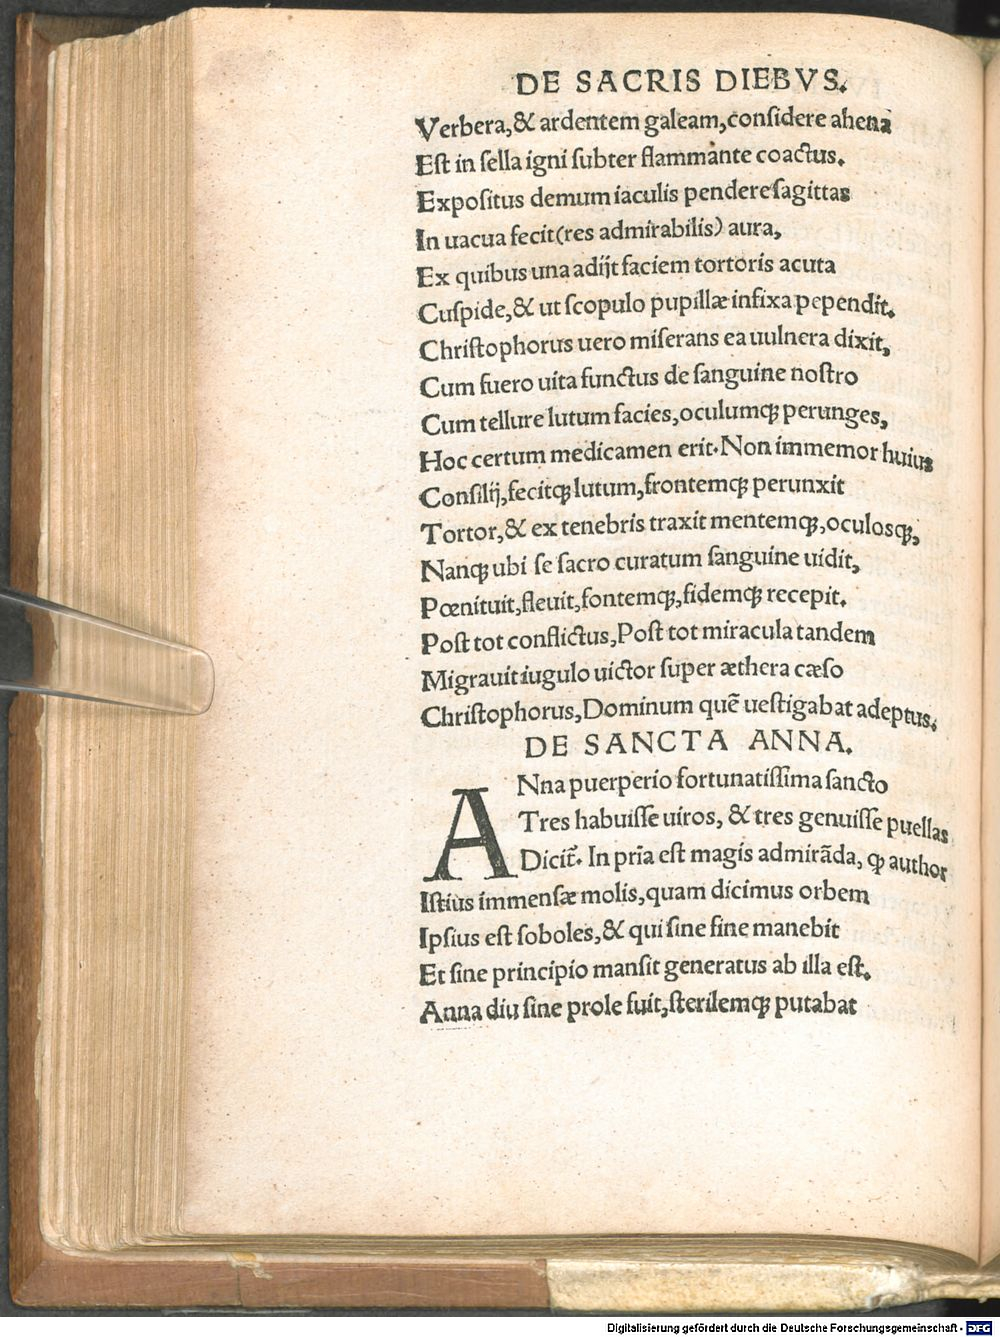 DE SACRIS DIEBVS.
Verbera,& ardentem galeam,conſidere ahena
Eſt in ſella igni ſubter flammante coactus.
Expoſitus demum iaculis pendere ſagittas
In uacua fecit(res admirabilis) aura,
Ex quibus una adijt faciem tortoris acuta
Cuſpide,& ut ſcopulo pupillæ infixa pependit.
Chriſtophorus uero miſerans ea uulnera dixit,
Cum fuero uita functus de ſanguine noſtro
Cum tellure lutum facies,oculumqꝫ perunges,
Hoc certum medicamen erit. Non immemor huius
Conſilij,fecitqꝫ lutum,frontemqꝫ perunxit
Tortor,& ex tenebris traxit mentemqꝫ,oculosqꝫ,
Nanqꝫ ubi ſe ſacro curatum ſanguine uidit,
Pœnituit,fleuit,fontemqꝫ,fidemqꝫ recepit.
Poſt tot conflictus,Poſt tot miracula tandem
Migrauit iugulo uictor ſuper æthera cæſo
Chriſtophorus,Dominum quē ueſtigabat adeptus.
DE SANCTA ANNA.
ANna puerperio fortunatiſſima ſancto
Tres habuiſſe uiros, & tres genuiſſe puellas
Dicit̄. In pr̄ia eſt magis admirāda, ꝙ author
Iſtius immenſæ molis,quam dicimus orbem
Ipſius eſt ſoboles,& qui ſine fine manebit
Et ſine principio manſit generatus ab illa eſt.
Anna diu ſine prole fuit,ſterilemqꝫ putabat
Digitalisierung gefördert durch die Deutsche Forschungsgemeinschaft - DFG